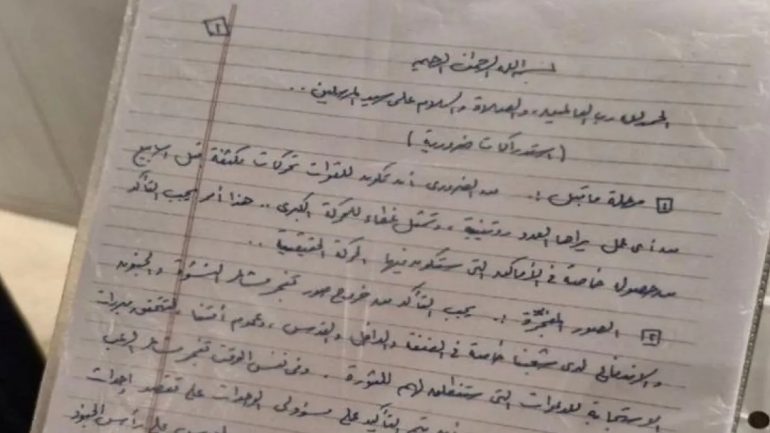 ١
بسم الله الرحمن الرحيم
الحمد لله رب العالمين، والصلاة والسلام على سيد المرسلين ..
( استدراكات ضرورية )
١ مرحلة ما قبل :. من الضروري أن تكون للقوات تحركات مكثفة قبل الأسابيع
من أي عمل يراها العدو روتينية، وتشكل غطاء للحركة الكبرى .. هذا أمر يجب التأكد
من حصوله خاصة في الأماكن التي ستكون فيها الحركة الحقيقية ..
٢ الصور المفجّرة :. يجب التأكد من خروج صور تفجر مشاعر النشوة والجنون
والاندفاع لدى شعبنا خاصة في الضفة والداخل والقدس، وعموم أمتنا لتتحقق مبررات
الاستجابة للدعوات التي ستنطلق لهم للثورة .. وفي نفس الوقت تفجر مشاعر الرعب
يتم التأكيد على مسؤولي الوحدات على تقصد إحداث
على رأس الجنود